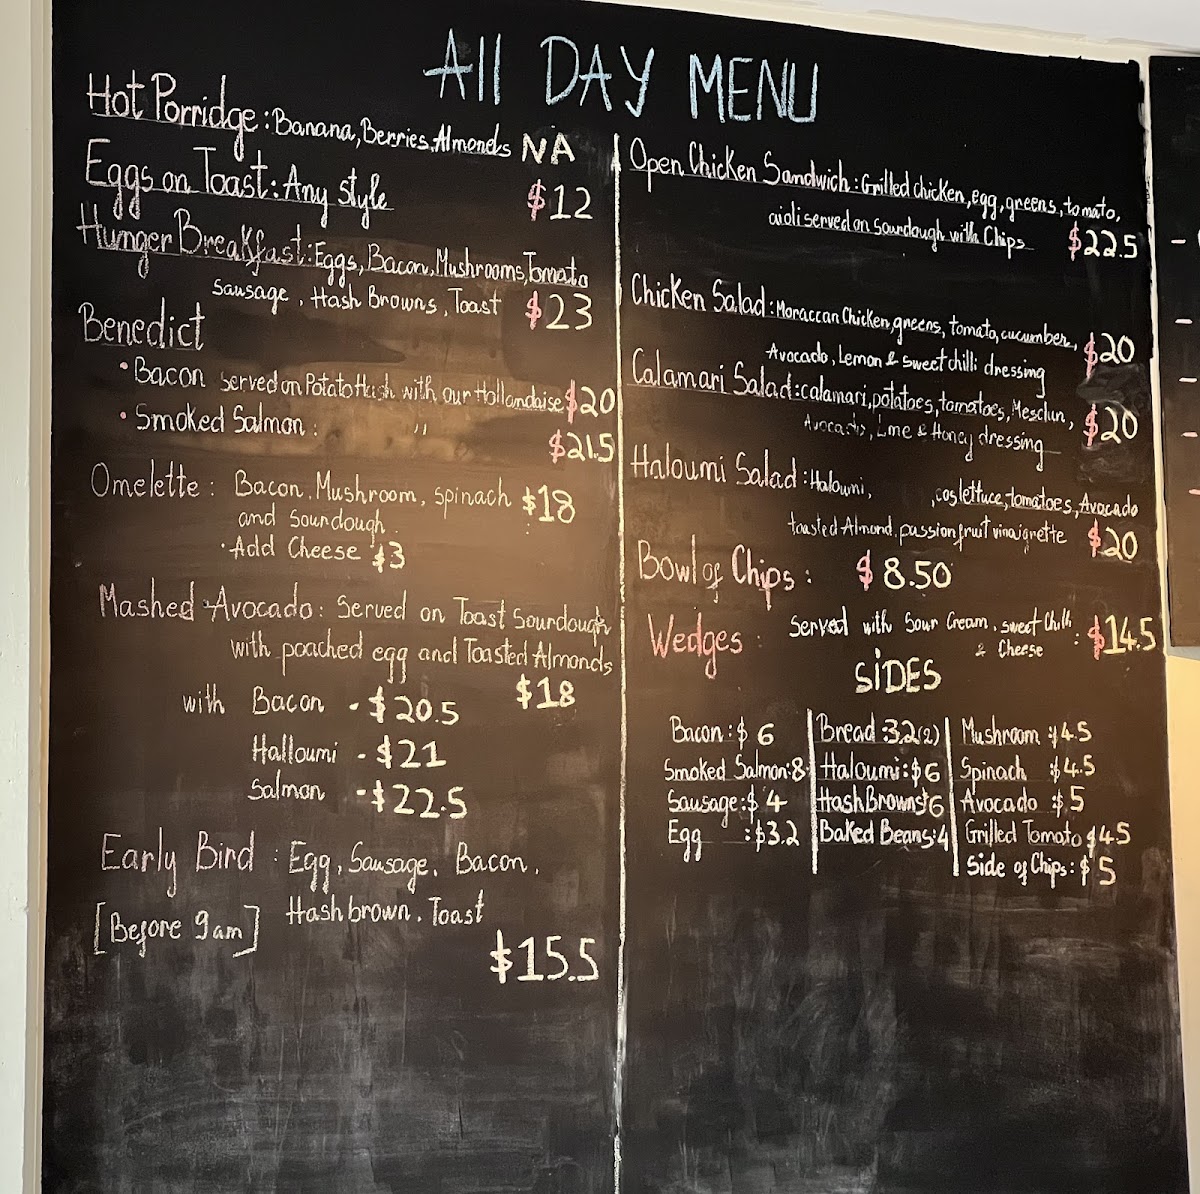 All DAY MENU
Hot Porridge: Banana, Berries, Almonds NA
Eggs on Toast: Any style $12
Hunger Breakfast: Eggs, Bacon, Mushrooms, Tomato
Sausage, Hash Browns, Toast $23
Benedict
• Bacon served on Potato Hash with our Hollandaise $20
• Smoked Salmon: " $21.5
Omelette: Bacon, Mushroom, spinach $18
and Sourdough
• Add Cheese $3
Mashed Avocado: Served on Toast Sourdough
with poached egg and Toasted Almonds
$18
with Bacon - $20.5
Halloumi - $21
Salmon - $22.5
Early Bird: Egg, Sausage, Bacon,
[Before 9am] Hashbrown, Toast
$15.5
Open Chicken Sandwich: Grilled chicken, egg, greens, tomato,
aioli served on Sourdough with Chips $22.5
Chicken Salad: Moraccan Chicken, greens, tomato, cucumber, $20
Avocado, Lemon & sweet chilli dressing
Calamari Salad: calamari, potatoes, tomatoes, Mesclun, $20
Avocado, Lime & Honey dressing
Haloumi Salad: Haloumi, , cos lettuce, tomatoes, Avocado
toasted Almond, passionfruit vinaigrette $20
Bowl of Chips: $8.50
Wedges: Served with Sour Cream, sweet Chilli : $14.5
& Cheese
SiDES
Bacon: $6 Bread: 3,2(2) Mushroom: $4.5
Smoked Salmon: 8 Haloumi: $6 Spinach $4.5
Sausage: $4 Hash Browns $6 Avocado $5
Egg : $3.2 Baked Beans: 4 Grilled Tomato $4.5
Side of Chips: $5